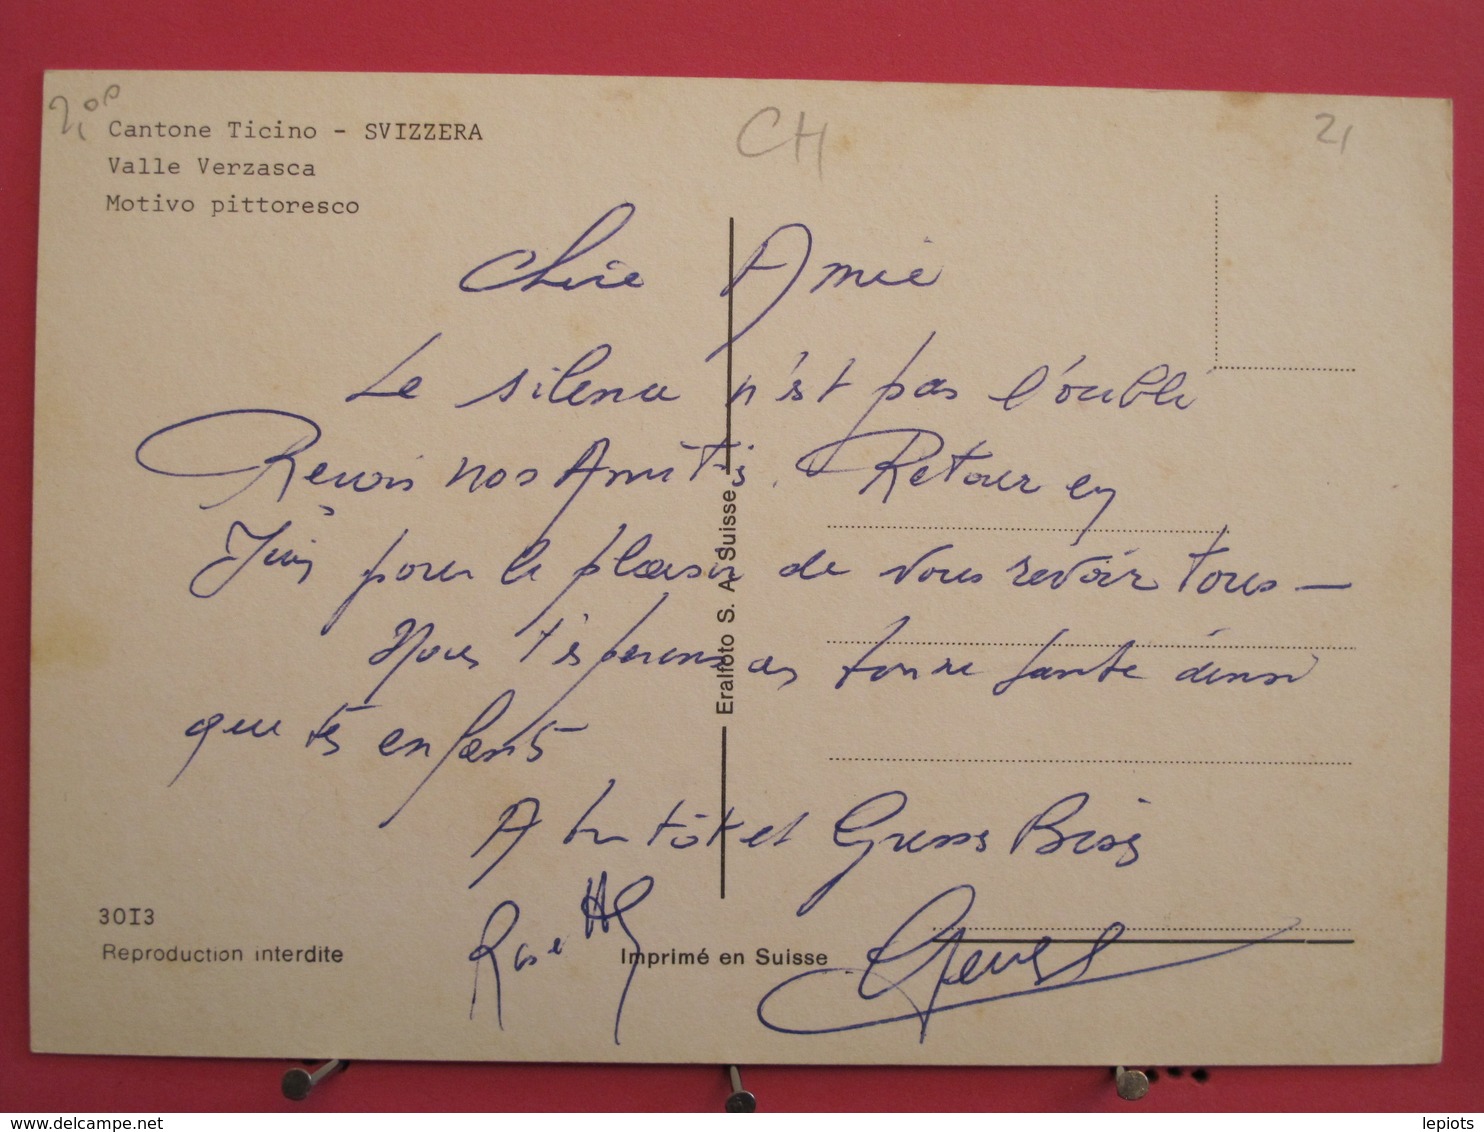 2,00
CH
21
Cantone Ticino - SVIZZERA
Valle Verzasca
Motivo pittoresco
Chère Amie
Le silence n'est pas l'oubli
Reçois nos Amitiés. Retour en
Juin pour le plaisir de vous revoir tous —
Nous t'espérons en bonne santé ainsi
que tes enfants
A bientôt et Gross Bisis
Eralfoto S. A. Suisse
3013
Reproduction interdite
Imprimé en Suisse
Rosette
delcampe.net
lepiots